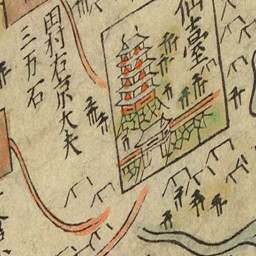 仙臺
田村右京大夫
三万石